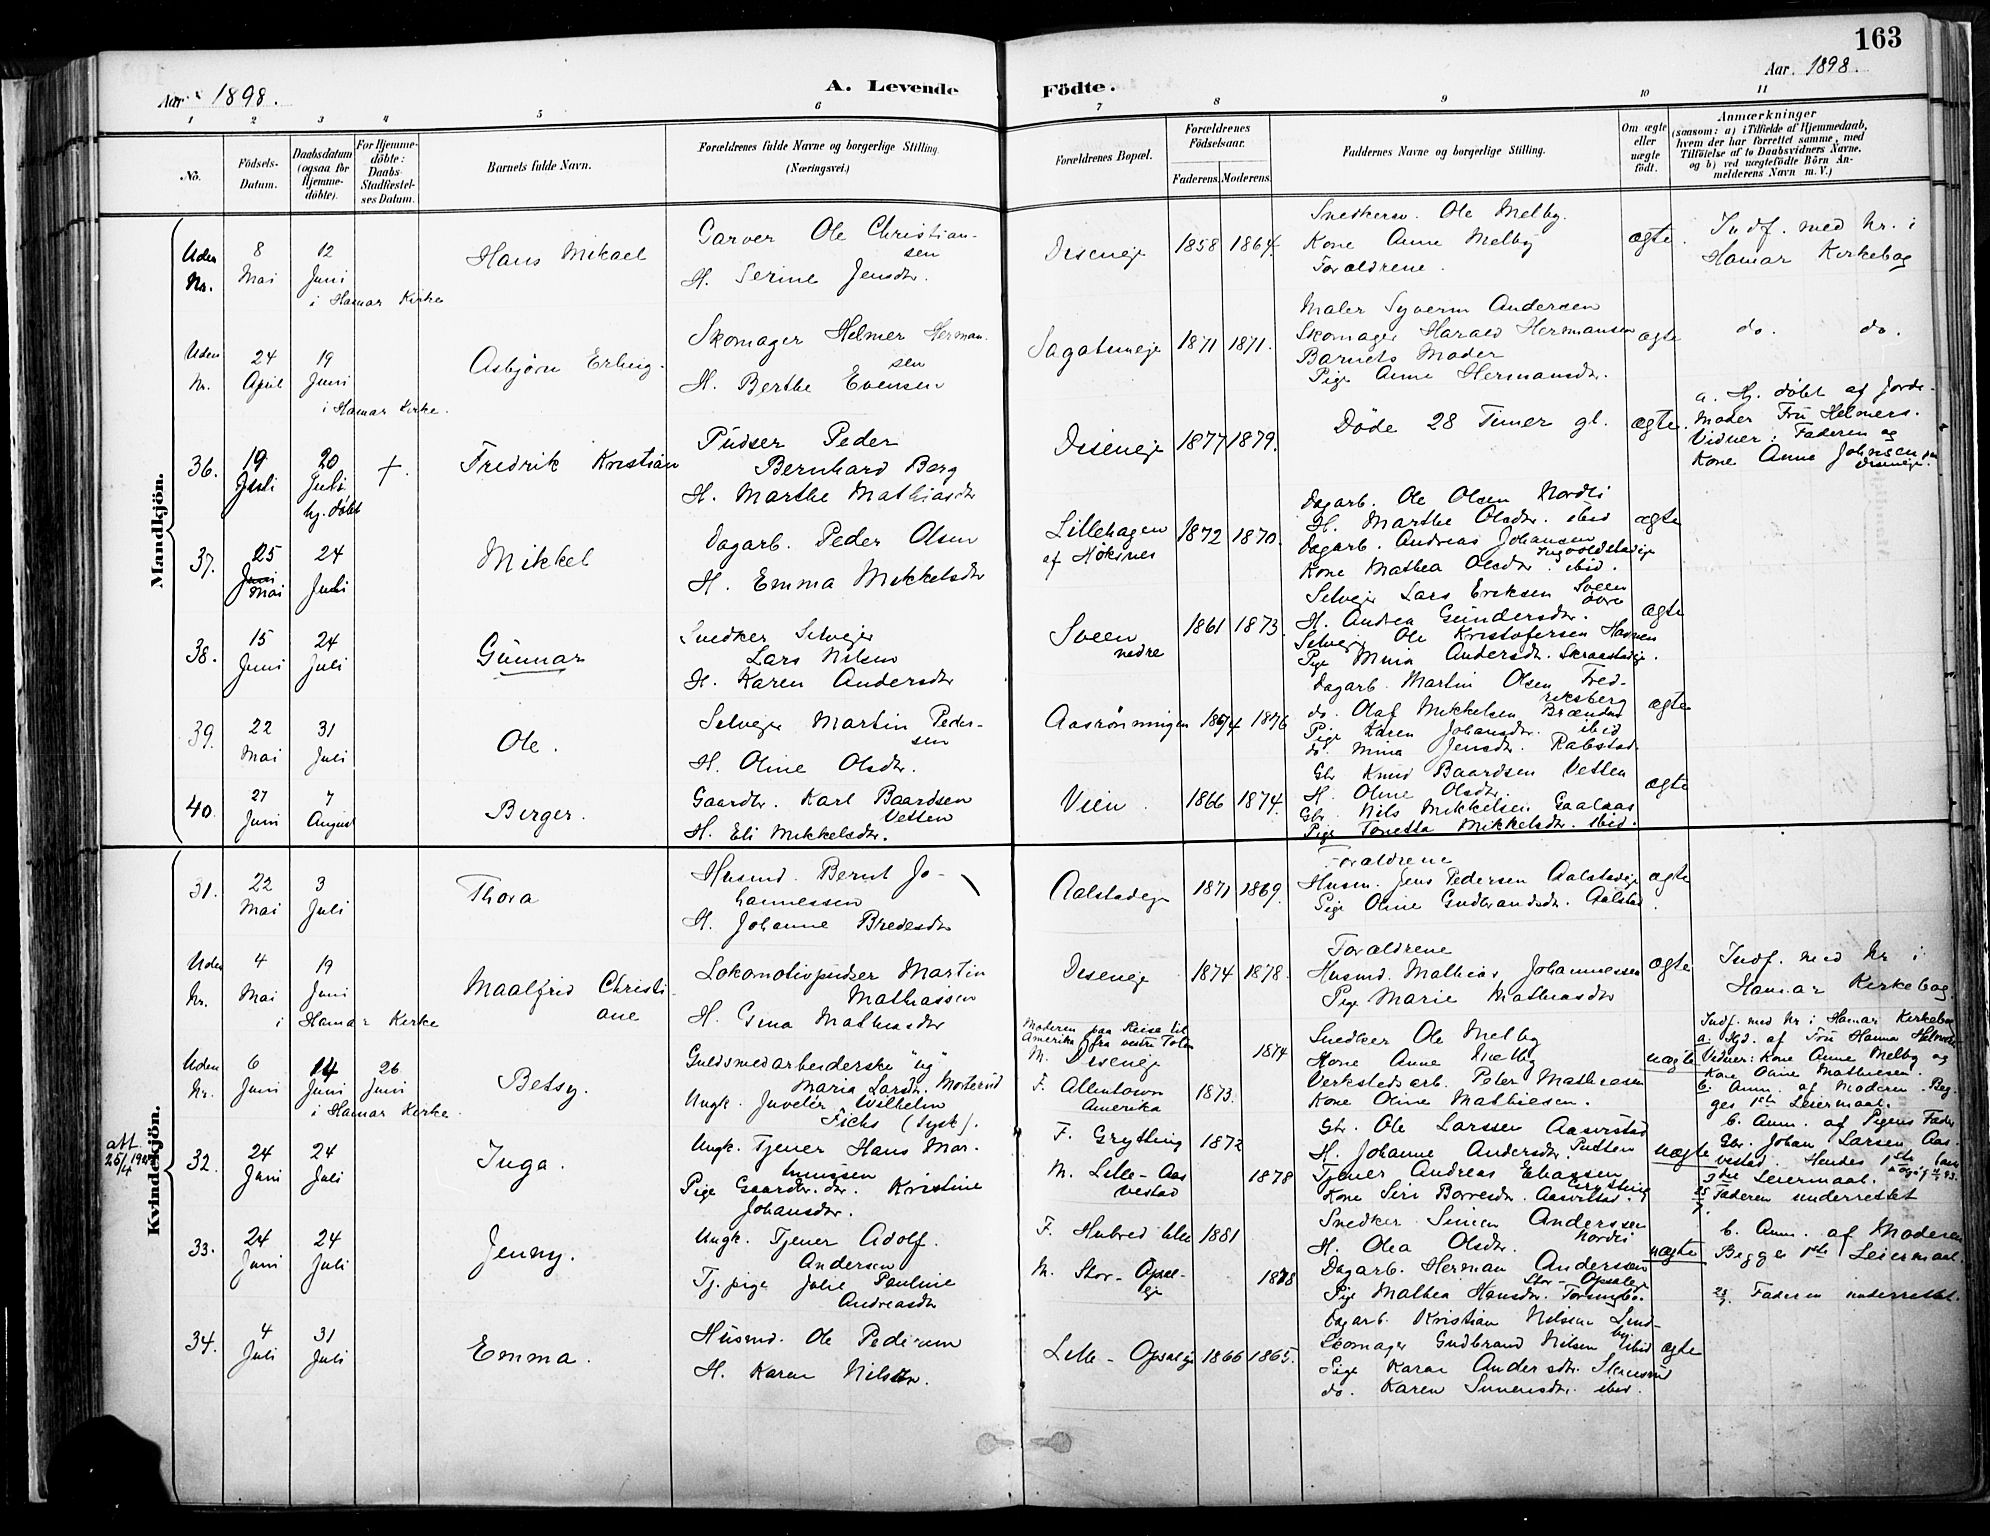 163
Aar 1898.
A. Levende Födte.
Aar. 1898.
1 2 3 4 5 6 7 8 9 10 11
No.
Födsels-Datum.
Daabsdatum (ogsaa for Hjemme-döbte).
For Hjemme-döbte: Daabs-Stadfæstel-ses Datum.
Barnets fulde Navn.
Forældrenes fulde Navne og borgerlige Stilling. (Næringsvei.)
Forældrenes Bopæl.
Forældrenes Födselsaar.
Faderens. Moderens.
Faddernes Navne og borgerlige Stilling.
Om ægte eller uægte födt.
Anmærkninger
(saasom: a) i Tilfælde af Hjemmedaab, hvem der har forrettet samme, med Tilföielse af to Daabsvidners Navne. og b) ved uægtefödte Börn An-melderens Navn m. V.)
Mandkjön.
Uden Nr.
8 Mai
12 Juni
i Hamar Kirke
Hans Mikael
Garver Ole Christian-
sen
H. Serine Jensdtr.
Diseneje
1858 1864.
Snedkersv. Ole Melby.
Kone Anne Melby
Forældrene.
ægte.
Indf. med Nr. i
Hamar Kirkebog
Uden Nr.
24 April
19 Juni
i Hamar Kirke.
Asbjørn Erling.
Skomager Helmer Herman-
sen
H. Berthe Evensen
Sagatuneje
1871 1871.
Maler Syverin Andersen
Skomager Harald Hermansen
Barnets Moder
Pige Anne Hermansdtr.
ægte
do. do.
36.
19 Juli
20 Juli
hj. døbt
+.
Fredrik Kristian
Pudser Peder
Bernhard Berg
H. Marthe Mathiasdtr
Diseneje
1877 1879.
Døde 28 Timer gl.
ægte.
a. Hj. døbt af Jorde-
moder Fru Helmers.
Vidner: Faderen og
Kone Anne Johnsen
Diseneje.
37.
25 Juni
Mai
24 Juli
Mikkel
Dagarb. Peder Olsen
H. Emma Mikkelsdtr
Lillehagen
af Høksnes
1872 1870.
Dagarb. Ole Olsen Nordli
H. Marthe Olsdtr. ibid
Dagarb. Andreas Johansen
Ingvoldstadeje
Kone Mathea Olsdtr. ibid.
ægte
38.
15 Juni
24 Juli
Gunnar
Snedker Selvejer
Lars Nilsen
H. Karen Andersdtr
Sveen
nedre
1861 1873.
Selvejer Lars Eriksen Sveen
øvre
H. Andrea Gundersdtr.
Selvejer Ole Kristofersen Hagen
Pige Mina Andersdtr. Skraastadeje.
ægte
39.
22 Mai
31 Juli
Ole.
Selvejer Martin Peder-
sen
H. Oline Olsdtr.
Aasrønningen
1874 1876
Dagarb. Martin Olsen Fred-
riksberg
do. Olaf Mikkelsen Brænden
Pige Karen Johansdtr. ibid
do. Mina Jensdtr. Rabstad
ægte
40.
27 Juni
7 August
Berger.
Gaardbr. Karl Baardsen
Vetten
H. Eli Mikkelsdtr.
Vien.
1866 1874.
Gbr Knud Baardsen Vetten
H. Oline Olsdtr.
Gbr. Nils Mikkelsen Gaalaas
Pige Tonetta Mikkelsdtr. ibid.
ægte
Kvindekjön.
31.
22 Mai
3 Juli
Thora
Husmd. Bernt Jo-
hannessen
H. Johanne Bredesdtr
Aalstadeje
1871 1869.
Forældrene
Husm. Jens Pedersen Aalstadeje
Pige Oline Gudbrandsdtr. Aalstad.
ægte
Uden Nr.
4 Mai
19 Juni
i Hamar Kirke
Maalfrid Christi-
ane
Lokomotivpudser Martin
Mathiassen
H. Gina Mathiasdtr
Diseneje
1874 1878.
Forældrene
Husmd. Mathias Johannessen
Pige Marie Mathiasdtr
ægte
Indf. med Nr i
Hamar Kirkebog.
Uden Nr.
6 Juni
14 Juni
26 Juni
i Hamar Kirke.
Betsy.
Guldsmedarbeiderske ug
Maria Larsdtr. Mosterud
Ungk. Juvelér Wilhelm
Fichs (Tysk).
Moderen paa Reise til
Amerika fra vestre Toten
M. Diseneje
F. Allentown
Amerika
1873.
1874
Snedker Ole Melby
Kone Anne Melby
Verkstedarb. Peter Mathiesen
Kone Oline Mathiesen.
uægte
Indf. med Nr i Hamar Kirkebog
a. Hjd. af Fru Hanna Helmers
Vidner: Kone Anne Melby og
Kone Oline Mathiesen.
b. Anm. af Moderen. Beg-
ges 1ste Leiermaal.
att.
25/4
32.
24 Juni
24 Juli
Inga.
Ungk. Tjener Hans Mar-
Pige Gaardbr. dtr. Kristine
Johansdtr.
F. Grytting
M. Lille-Aas
vestad
1872
1878
Gbr. Ole Larssen Aasvestad
H. Johanne Andersdtr. Putten
Tjener Andreas Eliassen
Grytting
Kone Siri Borresdtr. Aasvestad.
uægte
b. Anm. af Pigens Fader
Gbr. Johan Larsen Aas-
vestad. Hendes 1ste
3die Leiermaal.
25/7. Faderen underrettet
33.
24 Juni
24 Juli
Jenny.
Ungk. Tjener Adolf.
Andersen
Tj. pige Julie Pauline
Andreasdtr
F. Hubred lille
M. Stor-Opsal-
eje
1881
1878
Snedker Simen Anderssen
Nordli
H. Olea Olsdtr.
Dagarb. Herman Anderssen
Stor-Opsaleje
Pige Mathea Hansdtr.
uægte
b. Anm. af Moderen
Begges 1ste Leiermaal.
25/7. Faderen underrettet.
34.
4 Juli
31 Juli
Emma.
Husmd. Ole Pedersen
H. Karen Nilsdtr.
Lille-Opsaleje
1866 1865.
Dagarb. Kristian Nilsen Lind-
by
Skomager Gudbrand Nilsen ibid
Pige Karen Andersdtr.
do. Karen Simensdtr. ibid.
ægte